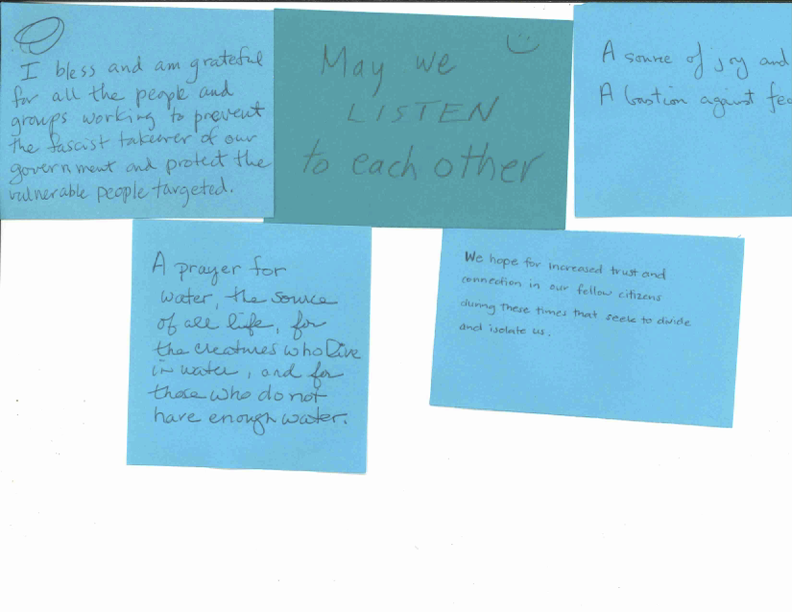 I bless and am grateful
for all the people and
groups working to prevent
the fascist takeover of our
government and protect the
vulnerable people targeted.
May we
LISTEN
to each other
A source of joy and
A bastion against
A prayer for
water, the source
of all life, for
the creatures who live
in water, and for
those who do not
have enough water.
We hope for increased trust and
connection in our fellow citizens
during these times that seek to divide
and isolate us.